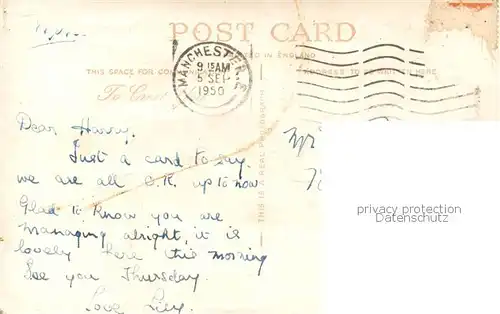 POST CARD
MANCHESTER
9 15AM
5 SEP
1950
IN ENGLAND
THIS SPACE FOR
ADDRESS TO BE WRITTEN HERE
THIS IS A REAL PHOTOGRAPH
Dear Harry.
Just a card to say
we are all O.K. up to now
Glad to know you are
managing alright, it is
lovely here this morning
See you Thursday.
Love Lily.
privacy protection
Datenschutz